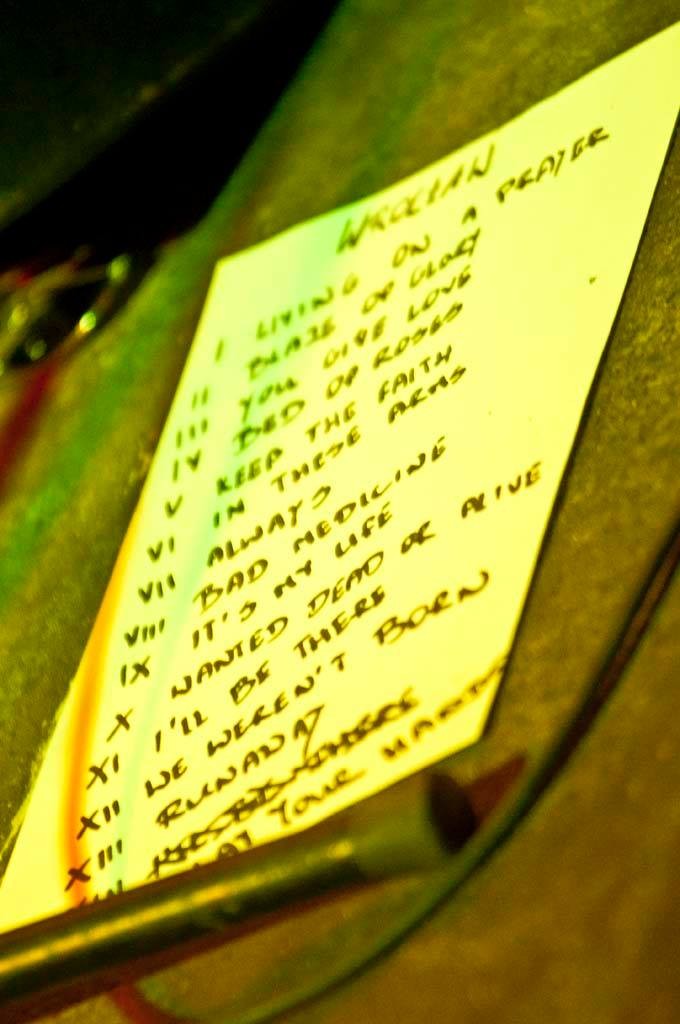 WROCŁAW
I LIVING ON A PRAYER
II BLAZE OF GLORY
III YOU GIVE LOVE
IV BED OF ROSES
V KEEP THE FAITH
VI IN THESE ARMS
VII ALWAYS
VIII BAD MEDICINE
IX IT'S MY LIFE
X WANTED DEAD OR ALIVE
XI I'LL BE THERE
XII WE WEREN'T BORN
XIII RUNAWAY
YOUR HANDS